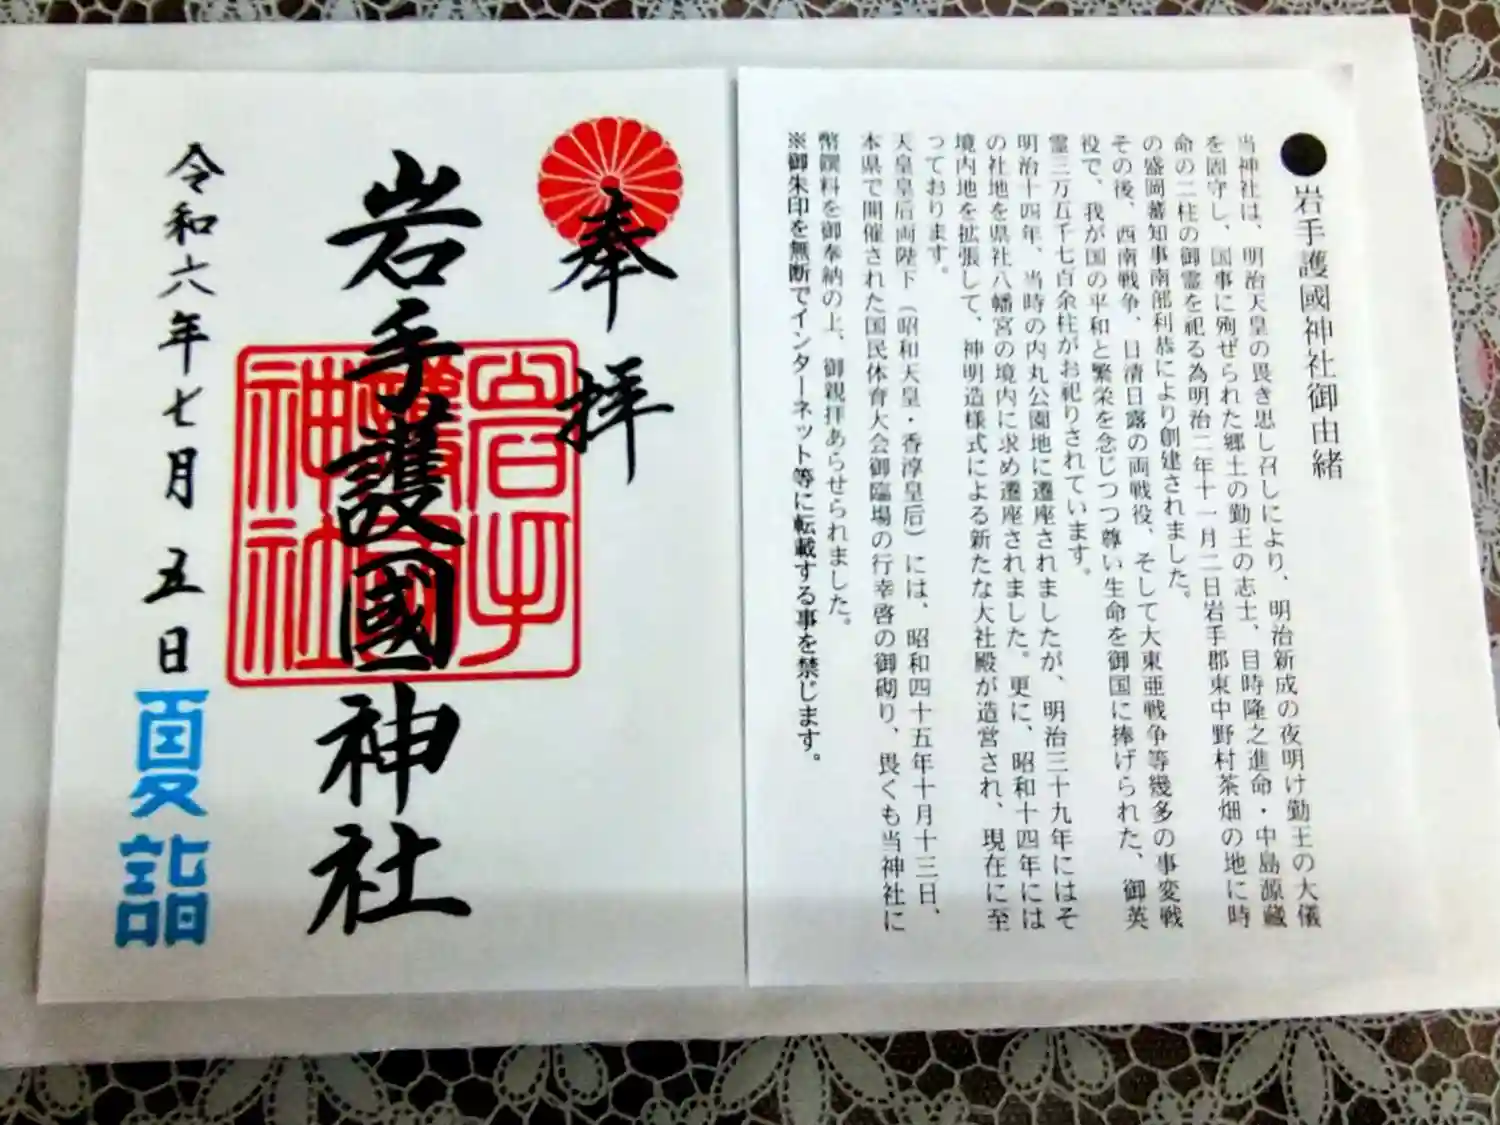 ●岩手護國神社御由緒
当神社は、明治天皇の畏き思し召しにより、明治新成の夜明け勤王の大儀
を固守し、国事に殉ぜられた郷土の勤王の志士、目時隆之進命・中島源蔵
命の二柱の御霊を祀る為明治二年十一月二日岩手郡東中野村茶畑の地に時
の盛岡藩知事南部利恭により創建されました。
その後、西南戦争、日清日露の両戦役、そして大東亜戦争等幾多の事変戦
役で、我が国の平和と繁栄を念じつつ尊い生命を御国に捧げられた、御英
霊三万五千七百余柱がお祀りされています。
明治十四年、当時の内丸公園地に遷座されましたが、明治三十九年にはそ
の社地を県社八幡宮の境内に求め遷座されました。更に、昭和十四年には
境内地を拡張して、神明造様式による新たな大社殿が造営され、現在に至
っております。
天皇皇后両陛下（昭和天皇・香淳皇后）には、昭和四十五年十月十三日、
本県で開催された国民体育大会御臨場の行幸啓の御砌り、畏くも当神社に
幣饌料を御奉納の上、御親拝あらせられました。
※御朱印を無断でインターネット等に転載する事を禁じます。
奉拝
岩手護國神社
岩手護國神社
令和六年七月五日
夏詣